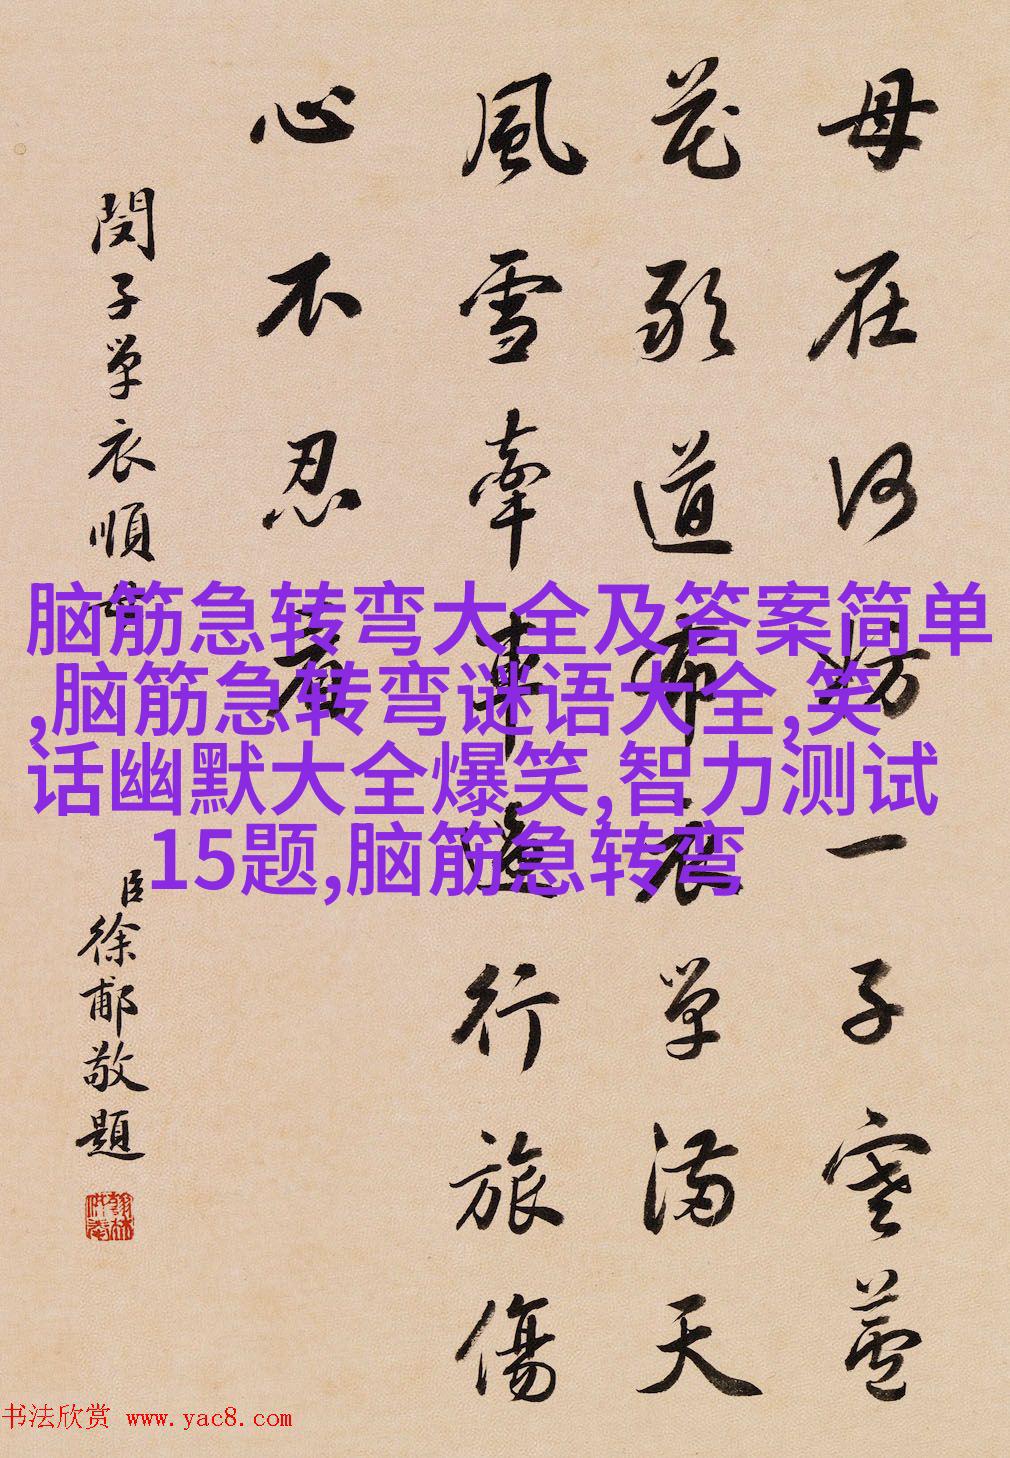 母在何妨一子寒蘆
花敢道布衣單滿天
風雪牽車行旅傷
心不忍看
閔子單衣順母
臣徐郙敬題
翰林供奉
脑筋急转弯大全及答案简单
,脑筋急转弯谜语大全,笑
话幽默大全爆笑,智力测试
15题,脑筋急转弯
书法欣赏 www.yac8.com